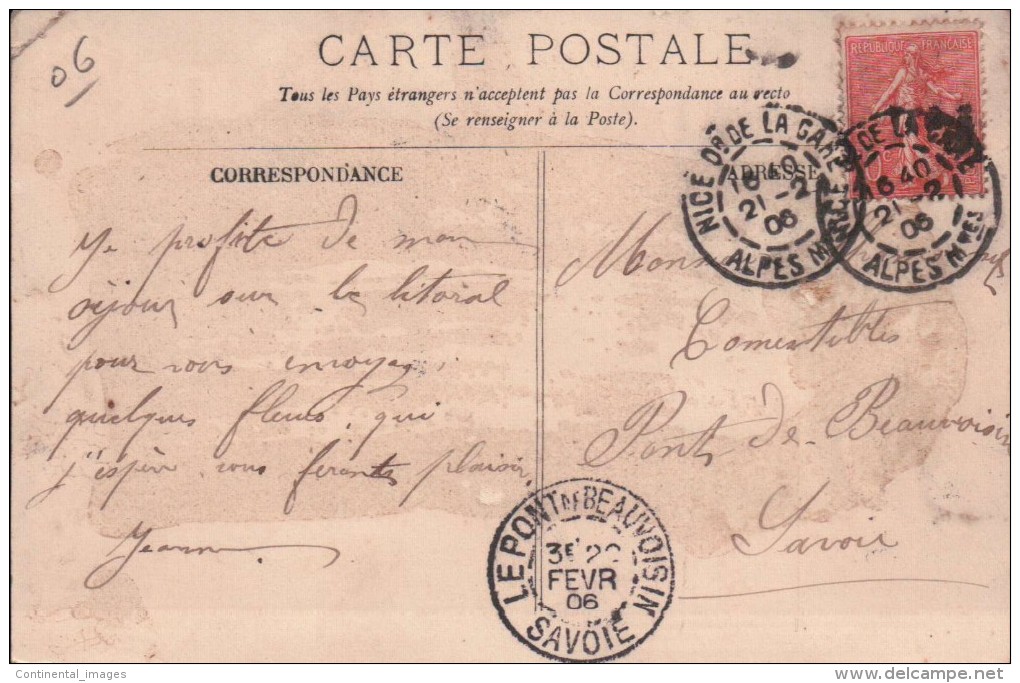 06
CARTE POSTALE
Tous les Pays étrangers n'acceptent pas la Correspondance au recto
(Se renseigner à la Poste).
RÉPUBLIQUE FRANÇAISE
NICE Pce DE LA GARE
16 40
21 - 2
06
ALPES MMES
DE LA
16 40
21 - 2
06
ALPES MMES
CORRESPONDANCE
ADRESSE
Je profite de mon
séjour sur le litoral
pour vous envoyer
quelques fleurs qui
j'espère vous feronts plaisir
Jeanne
Comestibles
Pont de Beauvoisin
Savoie
LE PONT DE BEAUVOISIN
3E 22
FEVR
06
SAVOIE
Continental_images
delcampe.net